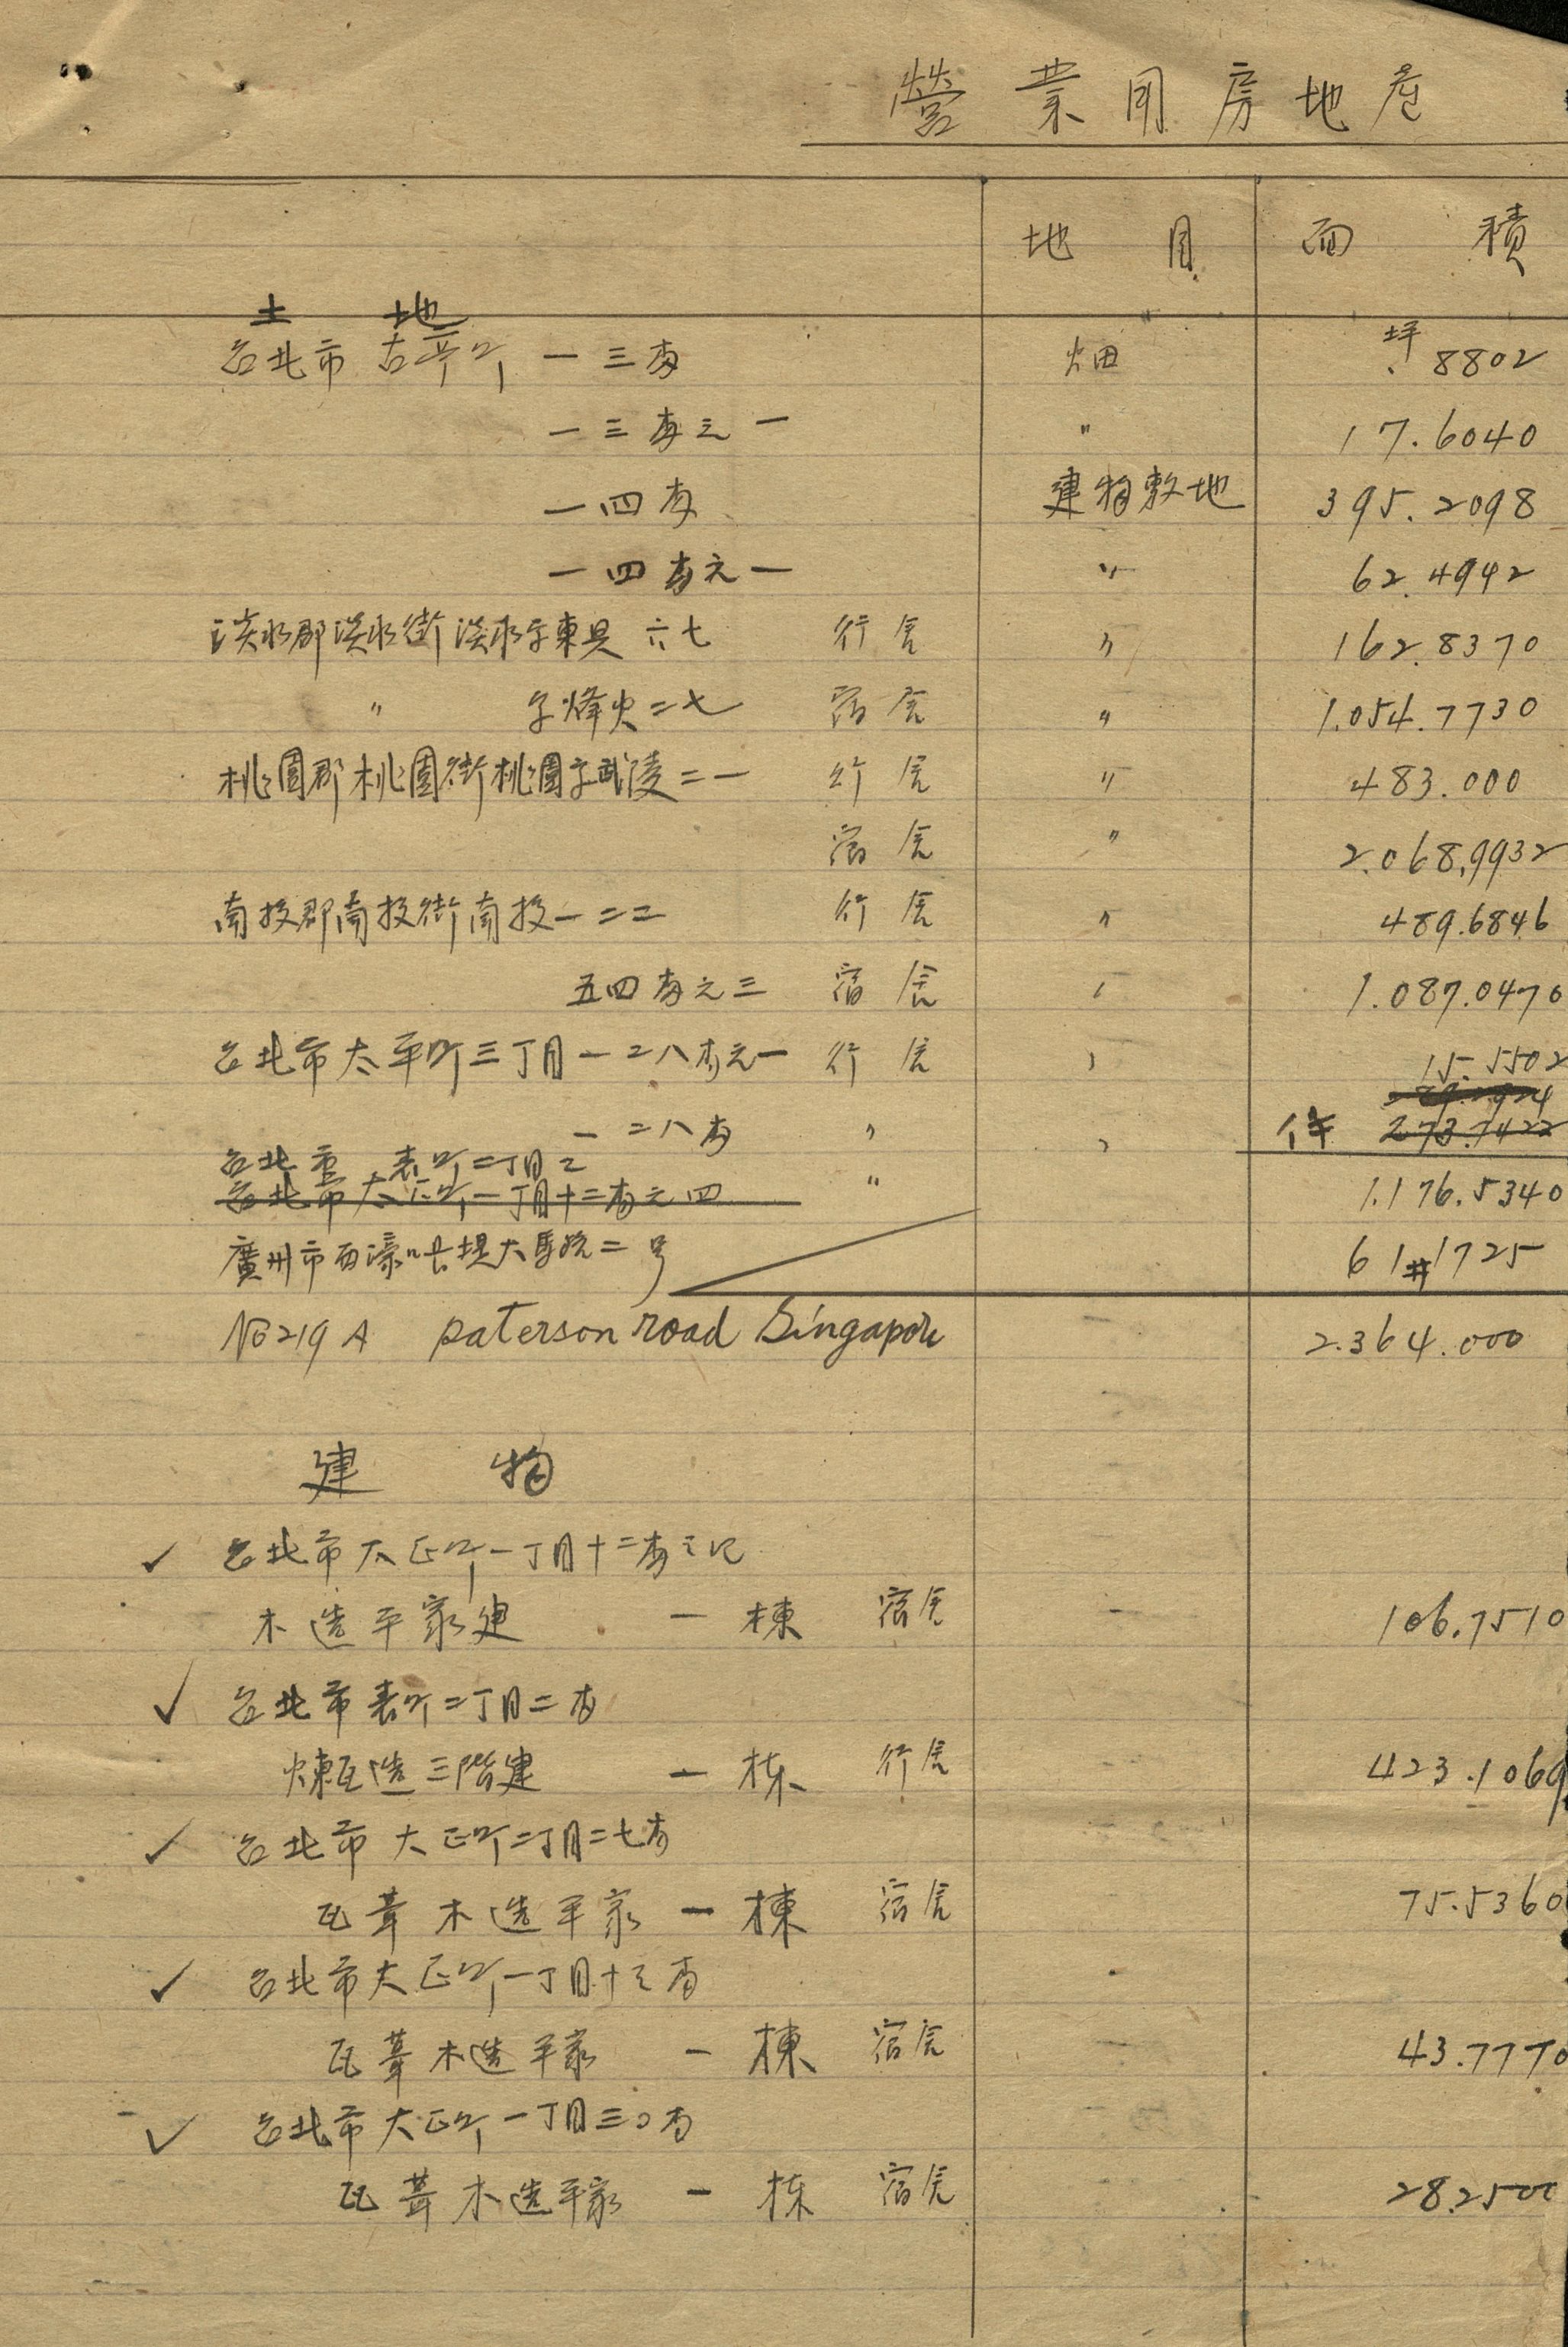 營業用房地產
地目 面積
土地
台北市古亭町一三番 畑 坪 .8802
一三番之一 〃 17.6040
一四番 建物敷地 395.2098
一四番之一 〃 62.4942
淡水郡淡水街淡水字東興 六七 行舍 〃 162.8370
〃 字烽火二七 宿舍 〃 1.054.7730
桃園郡桃園街桃園字武陵二一 行舍 〃 483.000
宿舍 〃 2.068.9932
南投郡南投街南投一二二 行舍 〃 489.6846
五四番之三 宿舍 〃 1.087.0470
台北市太平町三丁目一二八番之一 行舍 〃 15.5502
一二八番 〃 〃 273.7422
台北市表町二丁目二
台北市大正町一丁目十二番之四 〃 1.176.5340
廣州市西濠口長堤大馬路二号 61井1725
No 219 A paterson road Singapore 2.364.000
建物
✓ 台北市大正町一丁目十二番之
木造平家建 一棟 宿舍 106.7510
✓ 台北市表町二丁目二番
煉瓦造三階建 一栋 行舍 423.1069
✓ 台北市大正町二丁目二七番
瓦葺木造平家 一棟 宿舍 75.5360
✓ 台北市大正町一丁目十三番
瓦葺木造平家 一棟 宿舍 43.7770
✓ 台北市大正町一丁目三〇番
瓦葺木造平家 一栋 宿舍 28.2500